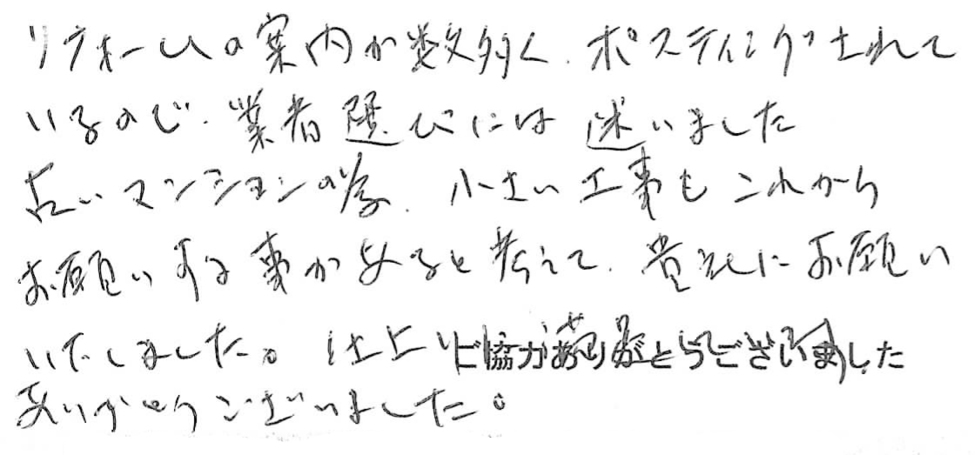 リフォームの案内が数多く、ポスティングされて
いるので、業者選びには迷いました
古いマンションの為、小さい工事もこれから
お願いする事があると考えて、貴社にお願い
いたしました。仕上り
ご協力ありがとうございました
ありがとうございました。